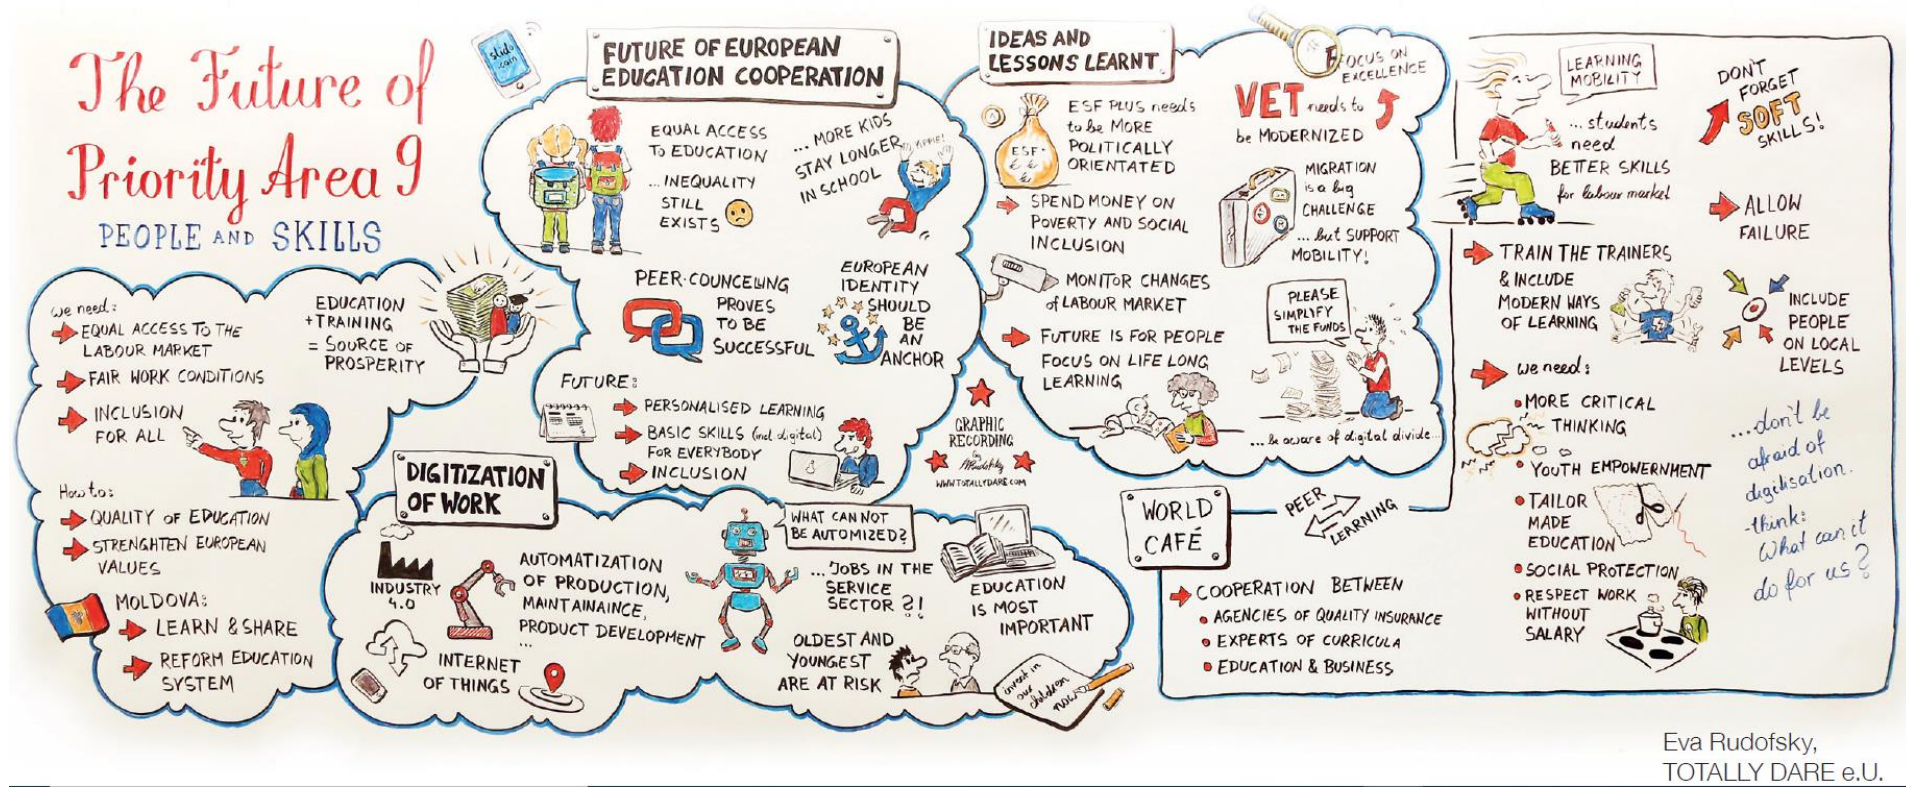 The Future of
Priority Area 9
PEOPLE AND SKILLS
we need:
EQUAL ACCESS TO THE
LABOUR MARKET
FAIR WORK CONDITIONS
INCLUSION
FOR ALL
EDUCATION
+ TRAINING
= SOURCE OF
PROSPERITY
How to:
QUALITY OF EDUCATION
STRENGHTEN EUROPEAN
VALUES
MOLDOVA:
LEARN & SHARE
REFORM EDUCATION
SYSTEM
slido
.com
FUTURE OF EUROPEAN
EDUCATION COOPERATION
EQUAL ACCESS
TO EDUCATION
...INEQUALITY
STILL
EXISTS
...MORE KIDS
STAY LONGER
IN SCHOOL
YIPPIE!
PEER-COUNCELLING
PROVES
TO BE
SUCCESSFUL
EUROPEAN
IDENTITY
SHOULD
BE
AN
ANCHOR
FUTURE:
PERSONALISED LEARNING
BASIC SKILLS (incl. digital)
FOR EVERYBODY
INCLUSION
GRAPHIC
RECORDING
by
WWW.TOTALLYDARE.COM
DIGITIZATION
OF WORK
INDUSTRY
4.0
AUTOMATIZATION
OF PRODUCTION,
MAINTAINANCE,
PRODUCT DEVELOPMENT
...
INTERNET
OF THINGS
WHAT CAN NOT
BE AUTOMIZED?
...JOBS IN THE
SERVICE
SECTOR ?!
OLDEST AND
YOUNGEST
ARE AT RISK
EDUCATION
IS MOST
IMPORTANT
invest in
our
children
now
IDEAS AND
LESSONS LEARNT
ESF
ESF PLUS needs
to be MORE
POLITICALLY
ORIENTATED
SPEND MONEY ON
POVERTY AND SOCIAL
INCLUSION
MONITOR CHANGES
of LABOUR MARKET
FUTURE IS FOR PEOPLE
FOCUS ON LIFE LONG
LEARNING
FOCUS ON
EXCELLENCE
VET needs to
be MODERNIZED
MIGRATION
is a big
CHALLENGE
... but SUPPORT
MOBILITY!
PLEASE
SIMPLIFY
THE FUNDS
...be aware of digital divide...
WORLD
CAFÉ
PEER
LEARNING
COOPERATION BETWEEN
AGENCIES OF QUALITY INSURANCE
EXPERTS OF CURRICULA
EDUCATION & BUSINESS
LEARNING
MOBILITY
... students
need
BETTER SKILLS
for labour market
TRAIN THE TRAINERS
& INCLUDE
MODERN WAYS
OF LEARNING
we need:
MORE CRITICAL
THINKING
YOUTH EMPOWERNMENT
TAILOR
MADE
EDUCATION
SOCIAL PROTECTION
RESPECT WORK
WITHOUT
SALARY
DON'T
FORGET
SOFT
SKILLS!
ALLOW
FAILURE
INCLUDE
PEOPLE
ON LOCAL
LEVELS
...don't be
afraid of
digitisation.
think:
What can it
do for us?
Eva Rudofsky,
TOTALLY DARE e.U.